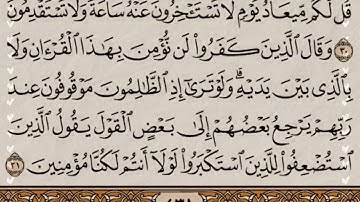 قُل لَّكُم مِّيعَادُ يَوْمٍ لَّا تَسْتَـْٔخِرُونَ عَنْهُ سَاعَةً وَلَا تَسْتَقْدِمُونَ
٣٠ وَقَالَ ٱلَّذِينَ كَفَرُوا۟ لَن نُّؤْمِنَ بِهَـٰذَا ٱلْقُرْءَانِ وَلَا
بِٱلَّذِى بَيْنَ يَدَيْهِ ۗ وَلَوْ تَرَىٰٓ إِذِ ٱلظَّـٰلِمُونَ مَوْقُوفُونَ عِندَ
رَبِّهِمْ يَرْجِعُ بَعْضُهُمْ إِلَىٰ بَعْضٍ ٱلْقَوْلَ يَقُولُ ٱلَّذِينَ
ٱسْتُضْعِفُوا۟ لِلَّذِينَ ٱسْتَكْبَرُوا۟ لَوْلَآ أَنتُمْ لَكُنَّا مُؤْمِنِينَ ٣١